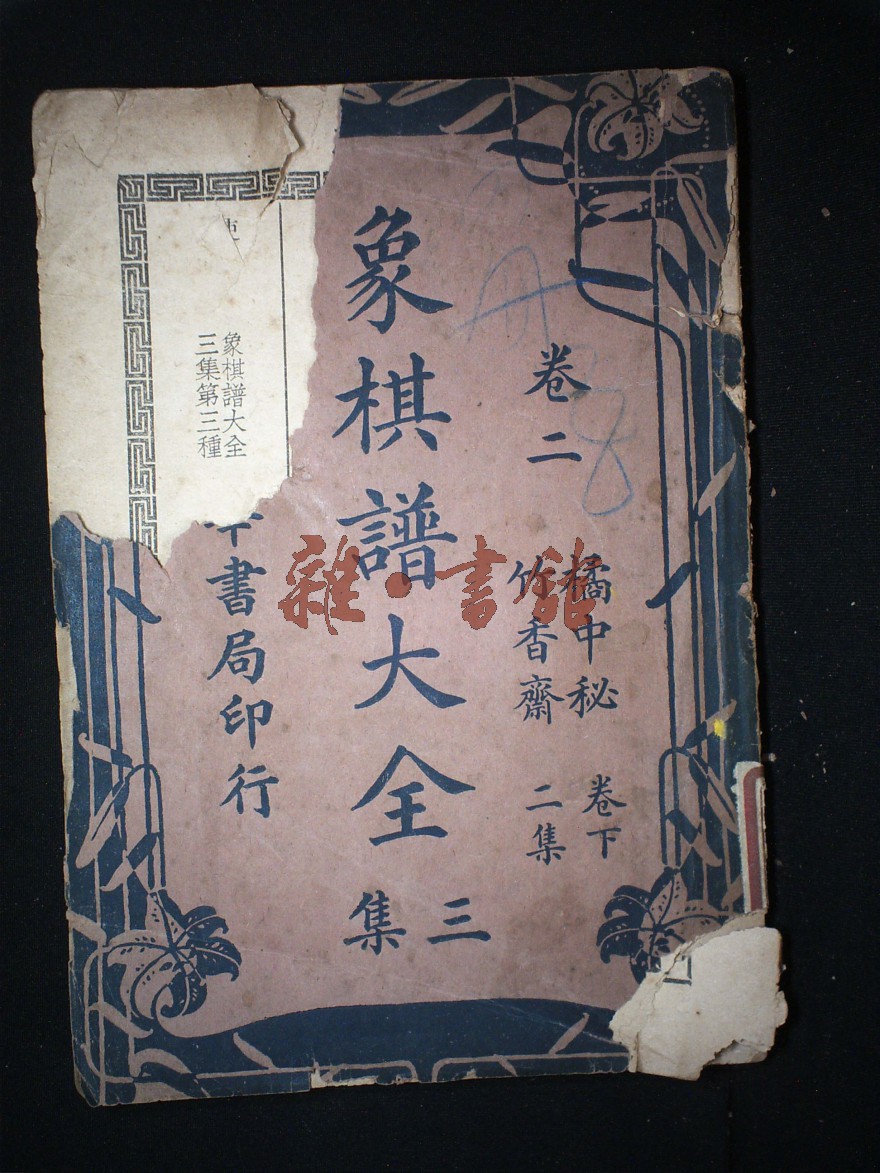 卷二
橘中秘 卷下
竹香齋 二集
象棋譜大全
三集
書局印行
象棋譜大全
三集第三種
雜·書館